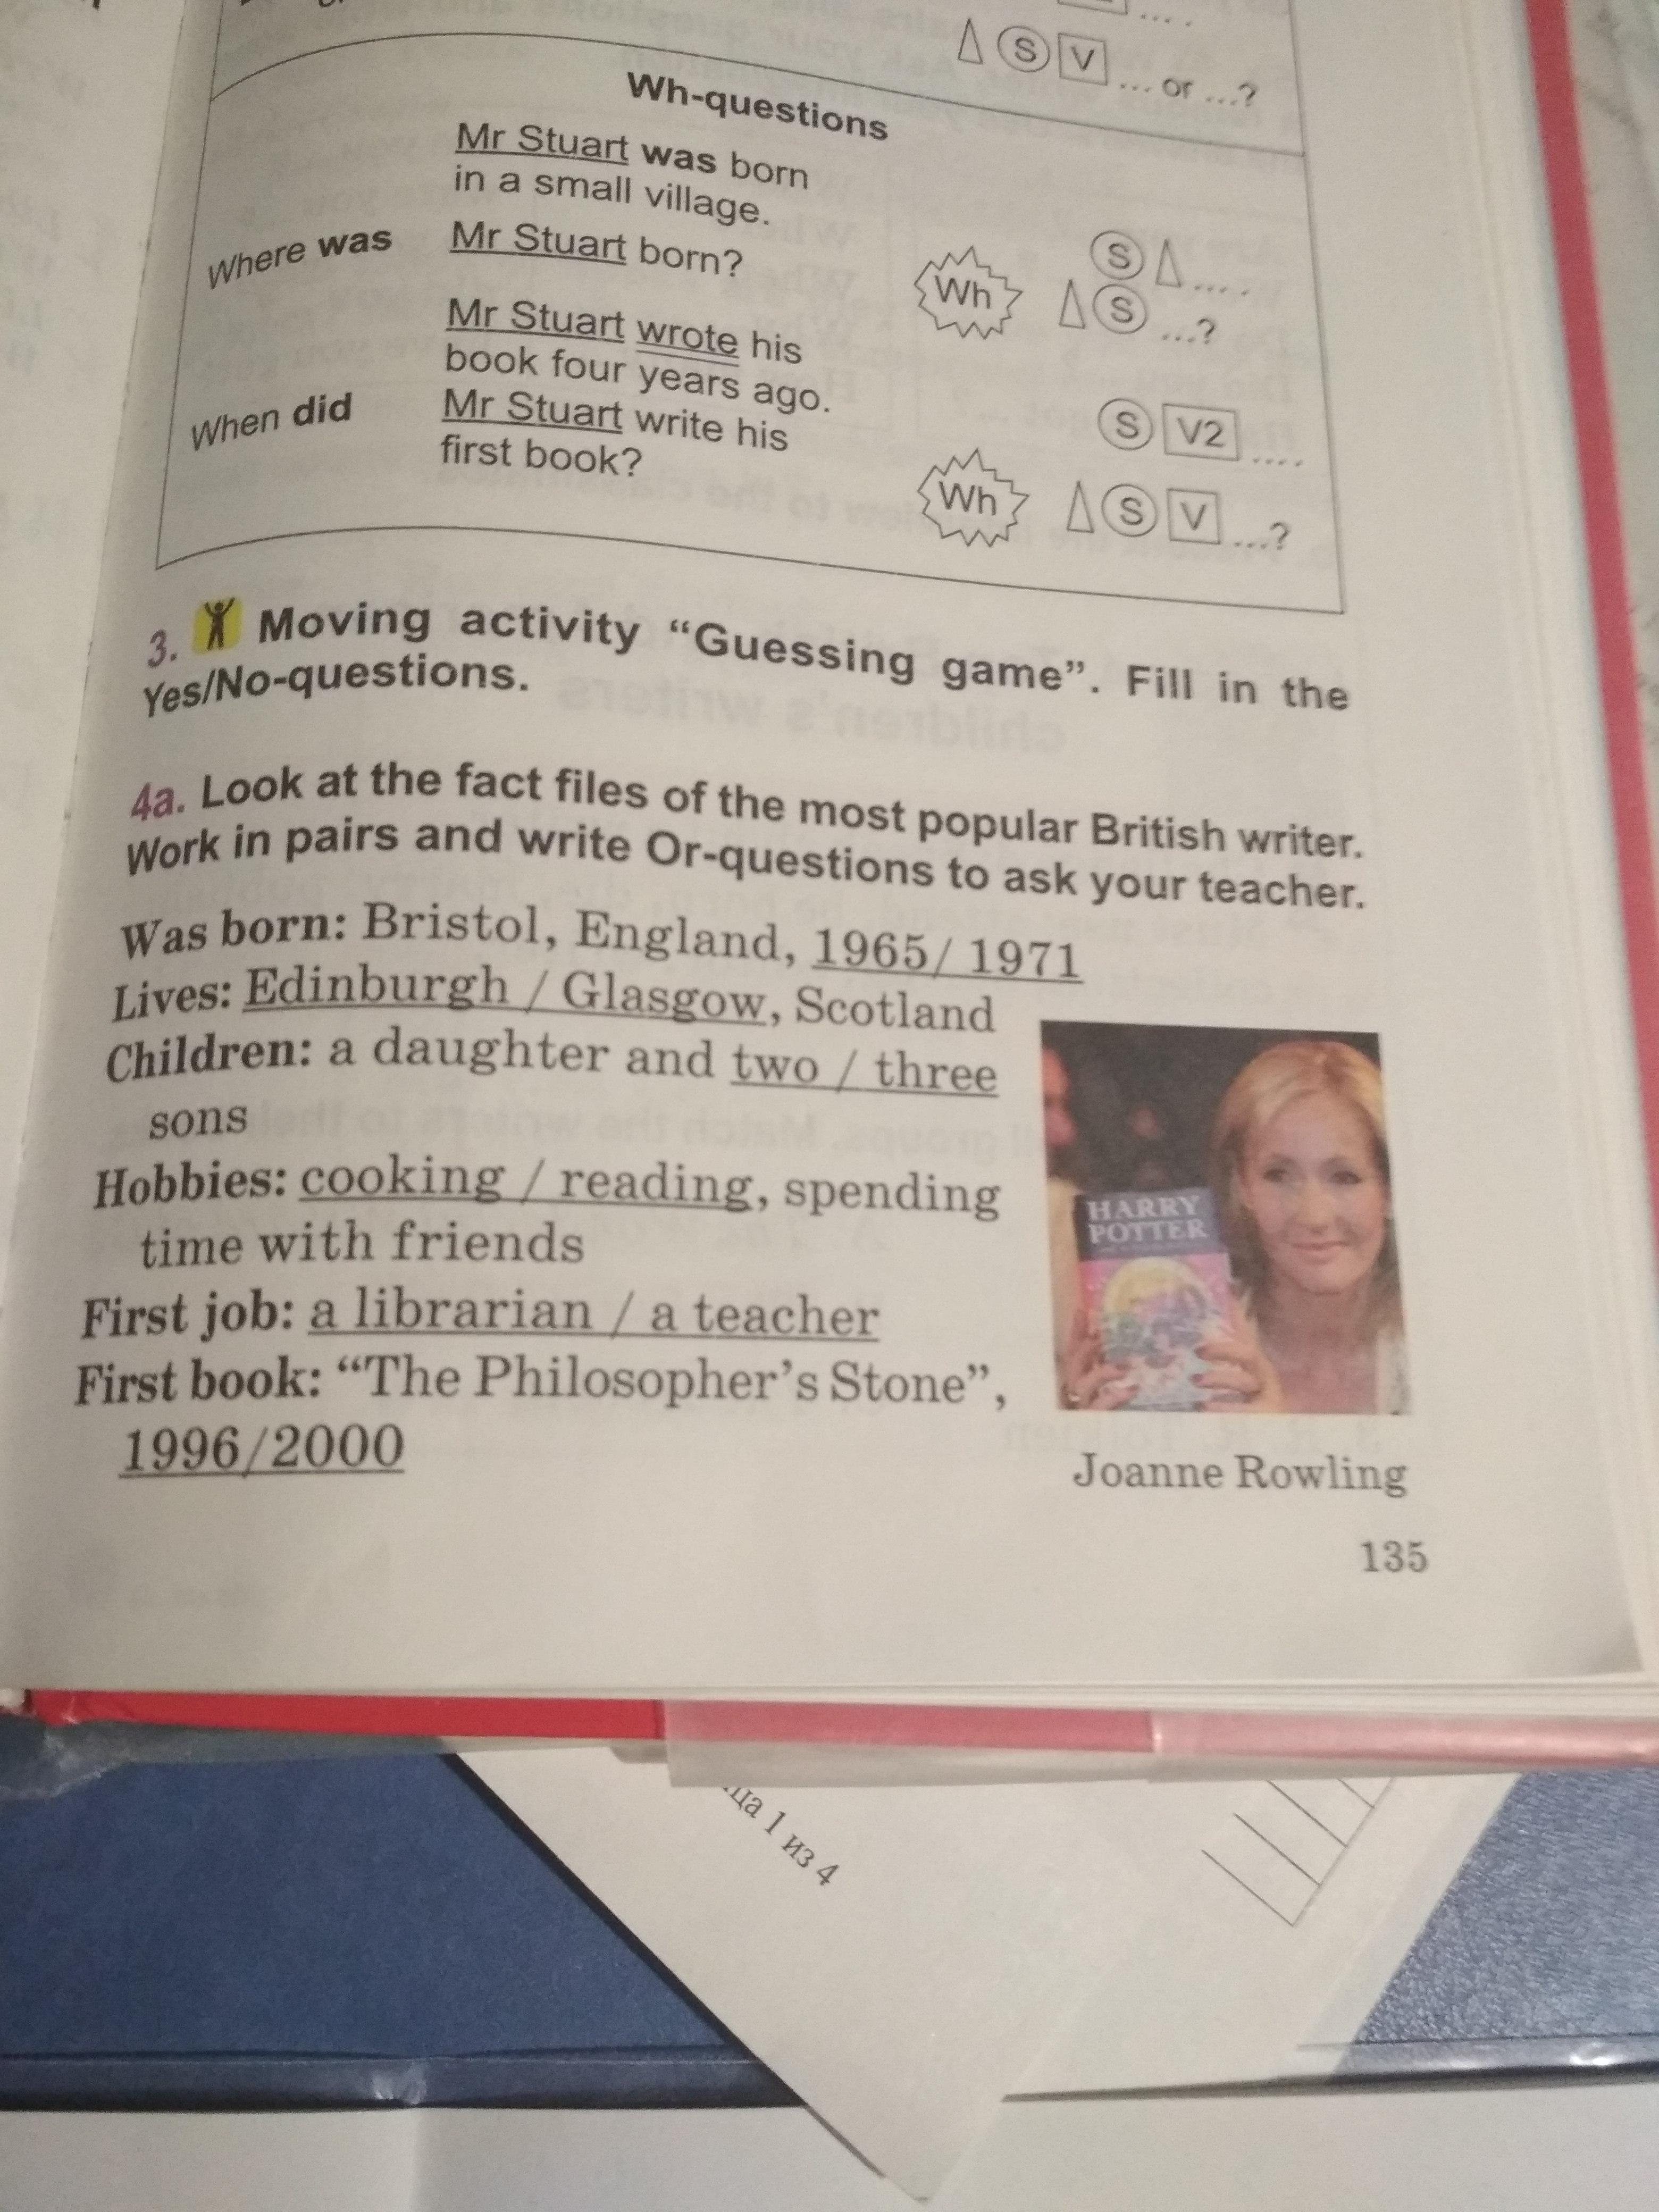 △ S V ... or ...?
Wh-questions
Mr Stuart was born
in a small village.
Where was Mr Stuart born?
S △ ... .
Wh △ S ...?
Mr Stuart wrote his
book four years ago.
When did Mr Stuart write his
first book?
S V2 ....
Wh △ S V ...?
3. Moving activity “Guessing game”. Fill in the
Yes/No-questions.
4a. Look at the fact files of the most popular British writer.
Work in pairs and write Or-questions to ask your teacher.
Was born: Bristol, England, 1965/ 1971
Lives: Edinburgh / Glasgow, Scotland
Children: a daughter and two / three
sons
Hobbies: cooking / reading, spending
time with friends
First job: a librarian / a teacher
First book: “The Philosopher’s Stone”,
1996/2000
HARRY
POTTER
Joanne Rowling
135
1 из 4